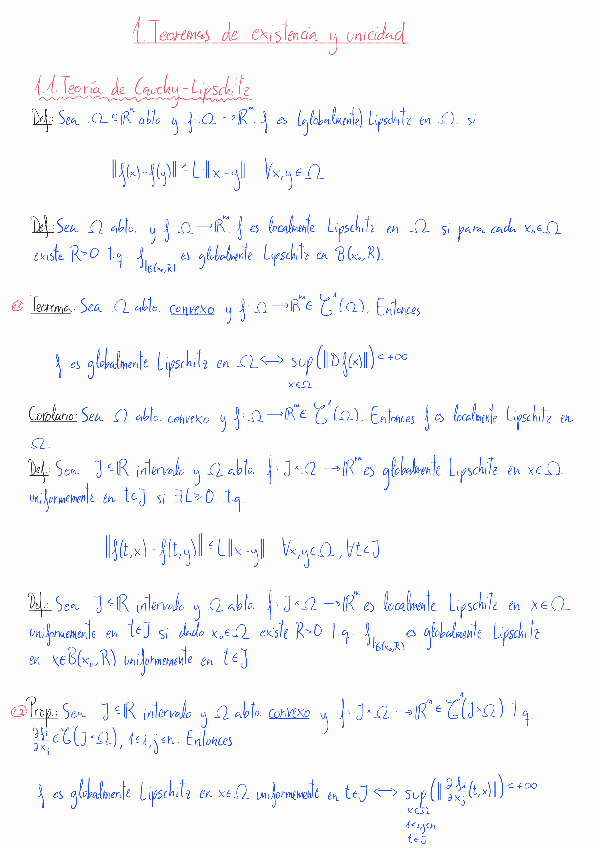 1. Teoremas de existencia y unicidad
1.1. Teoría de Cauchy-Lipschitz
Def.: Sea Ω⊆ℝⁿ abto y f: Ω→ℝᵐ. f es (globalmente) Lipschitz en Ω si
‖f(x)-f(y)‖ ≤ L·‖x-y‖ ∀x,y∈Ω
Def.: Sea Ω abto. y f: Ω→ℝᵐ. f es localmente Lipschitz en Ω si para cada x₀∈Ω
existe R>0 t.q. f|B(x₀,R) es globalmente Lipschitz en B(x₀,R).
1.1 Teorema: Sea Ω abto. convexo y f: Ω→ℝᵐ∈𝒞¹(Ω). Entonces
f es globalmente Lipschitz en Ω ⟺ sup x∈Ω (‖Df(x)‖) < +∞
Corolario: Sea Ω abto. convexo y f: Ω→ℝᵐ∈𝒞¹(Ω). Entonces f es localmente Lipschitz en
Ω.
Def.: Sea J⊆ℝ intervalo y Ω abto. f: J×Ω→ℝᵐ es globalmente Lipschitz en x∈Ω
uniformemente en t∈J si ∃L≥0 t.q.
‖f(t,x)-f(t,y)‖ ≤ L‖x-y‖ ∀x,y∈Ω, ∀t∈J
Def.: Sea J⊆ℝ intervalo y Ω abto. f: J×Ω→ℝᵐ es localmente Lipschitz en x∈Ω
uniformemente en t∈J si dado x₀∈Ω existe R>0 t.q. f|B(x₀,R) es globalmente Lipschitz
en x∈B(x₀,R) uniformemente en t∈J
1.2 Prop.: Sea J⊆ℝ intervalo y Ω abto. convexo y f: J×Ω→ℝⁿ∈𝒞¹(J×Ω) t.q.
∂fᵢ/∂xⱼ∈𝒞(J×Ω), 1≤i,j≤n. Entonces
f es globalmente Lipschitz en x∈Ω uniformemente en t∈J ⟺ sup x∈Ω 1≤i,j≤n t∈J (‖∂fᵢ/∂xⱼ(t,x)‖) < +∞